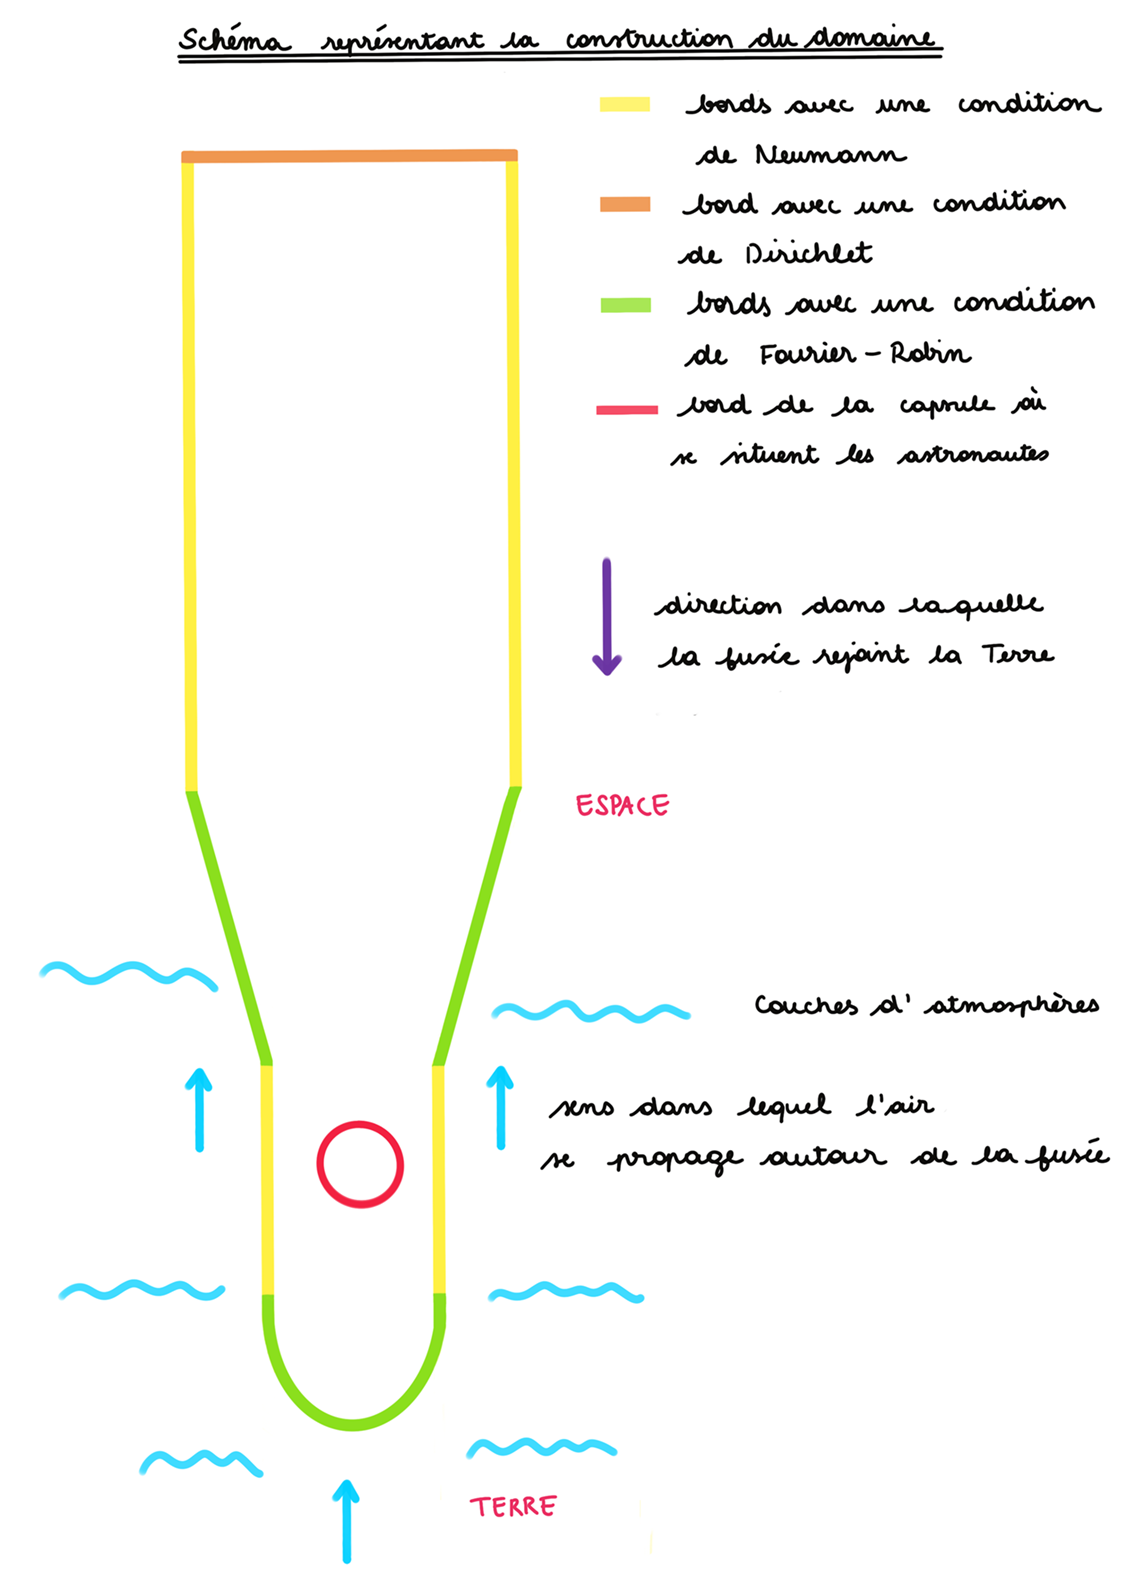 Schéma représentant la construction du domaine
bords avec une condition
de Neumann
bord avec une condition
de Dirichlet
bords avec une condition
de Fourier-Robin
bord de la capsule où
se situent les astronautes
direction dans laquelle
la fusée rejoint la Terre
ESPACE
Couches d'atmosphères
sens dans lequel l'air
se propage autour de la fusée
TERRE